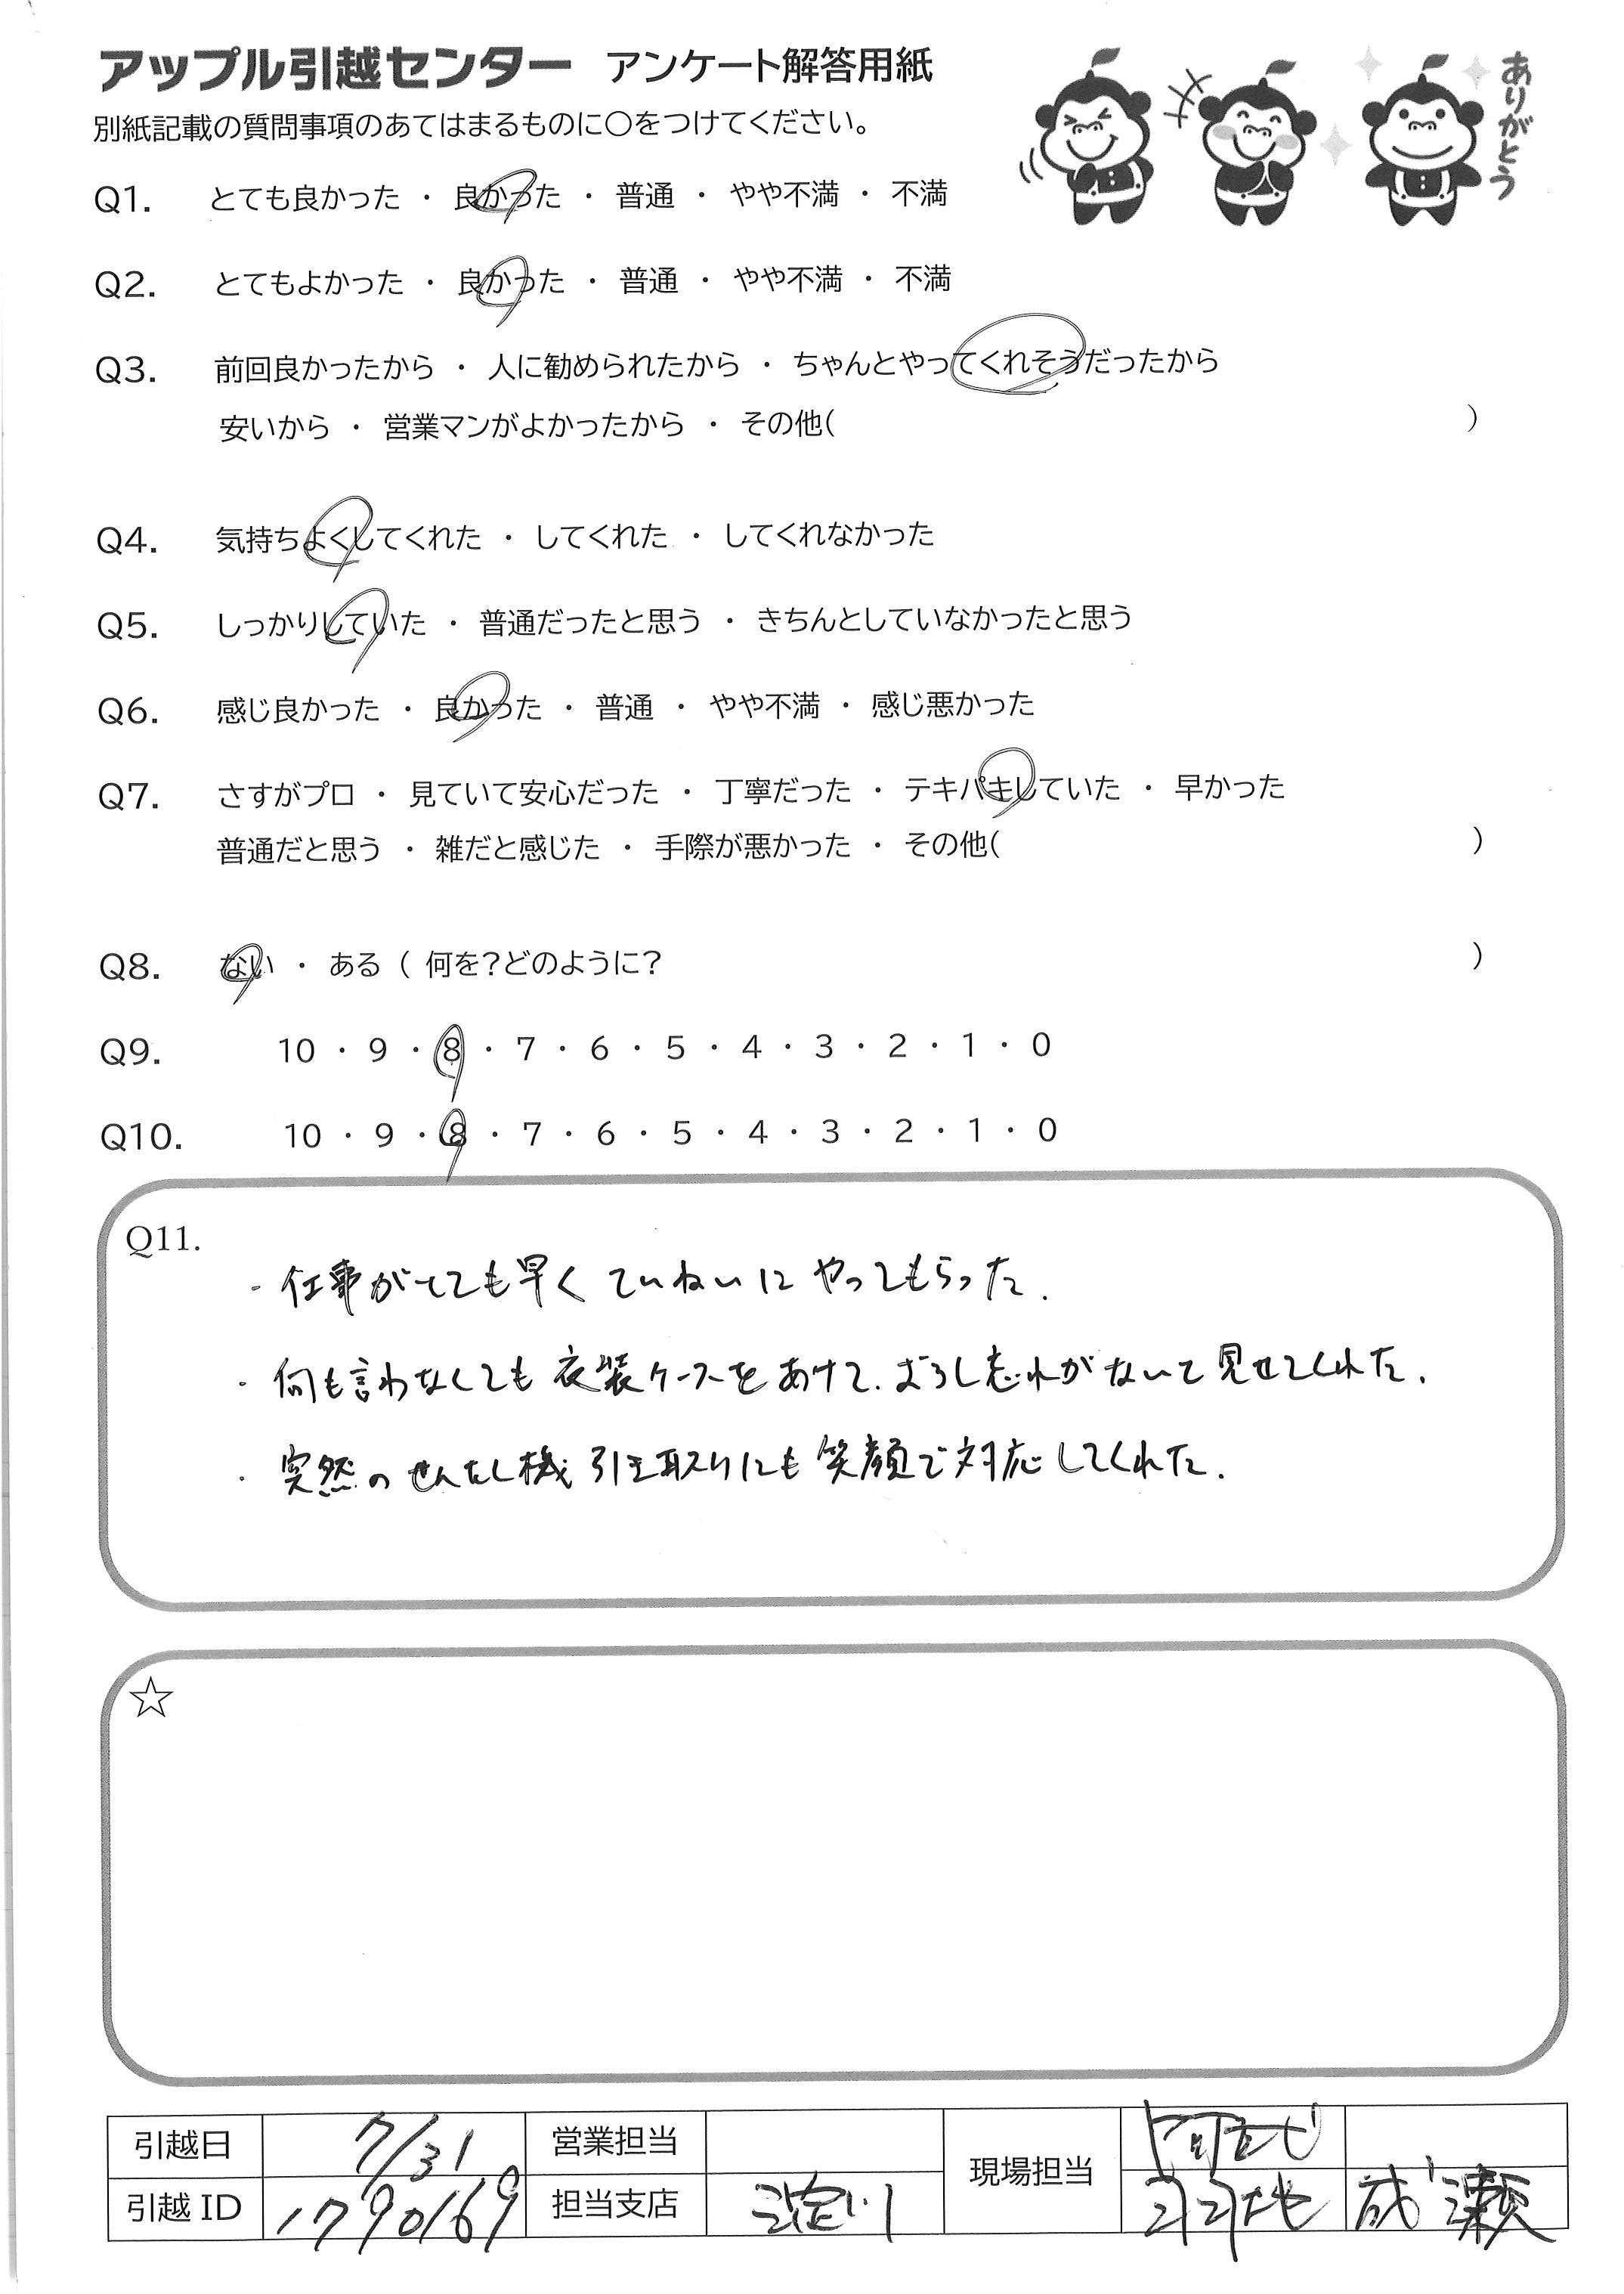 アップル引越センター アンケート解答用紙
ありがとう
別紙記載の質問事項のあてはまるものに○をつけてください。
Q1. とても良かった ・ 良かった ・ 普通 ・ やや不満 ・ 不満
Q2. とてもよかった ・ 良かった ・ 普通 ・ やや不満 ・ 不満
Q3. 前回良かったから ・ 人に勧められたから ・ ちゃんとやってくれそうだったから
安いから ・ 営業マンがよかったから ・ その他( )
Q4. 気持ちよくしてくれた ・ してくれた ・ してくれなかった
Q5. しっかりしていた ・ 普通だったと思う ・ きちんとしていなかったと思う
Q6. 感じ良かった ・ 良かった ・ 普通 ・ やや不満 ・ 感じ悪かった
Q7. さすがプロ ・ 見ていて安心だった ・ 丁寧だった ・ テキパキしていた ・ 早かった
普通だと思う ・ 雑だと感じた ・ 手際が悪かった ・ その他( )
Q8. ない ・ ある ( 何を?どのように? )
Q9. 10 ・ 9 ・ 8 ・ 7 ・ 6 ・ 5 ・ 4 ・ 3 ・ 2 ・ 1 ・ 0
Q10. 10 ・ 9 ・ 8 ・ 7 ・ 6 ・ 5 ・ 4 ・ 3 ・ 2 ・ 1 ・ 0
Q11.
・仕事がとても早くていねいにやってもらった.
・何も言わなくても衣装ケースをあけて.おろし忘れがないて見せてくれた.
・突然のせんたくし機引き取りにも笑顔で対応してくれた.
☆
引越日 7/31 営業担当 現場担当
引越 ID 1790169 担当支店 淀川 成瀬